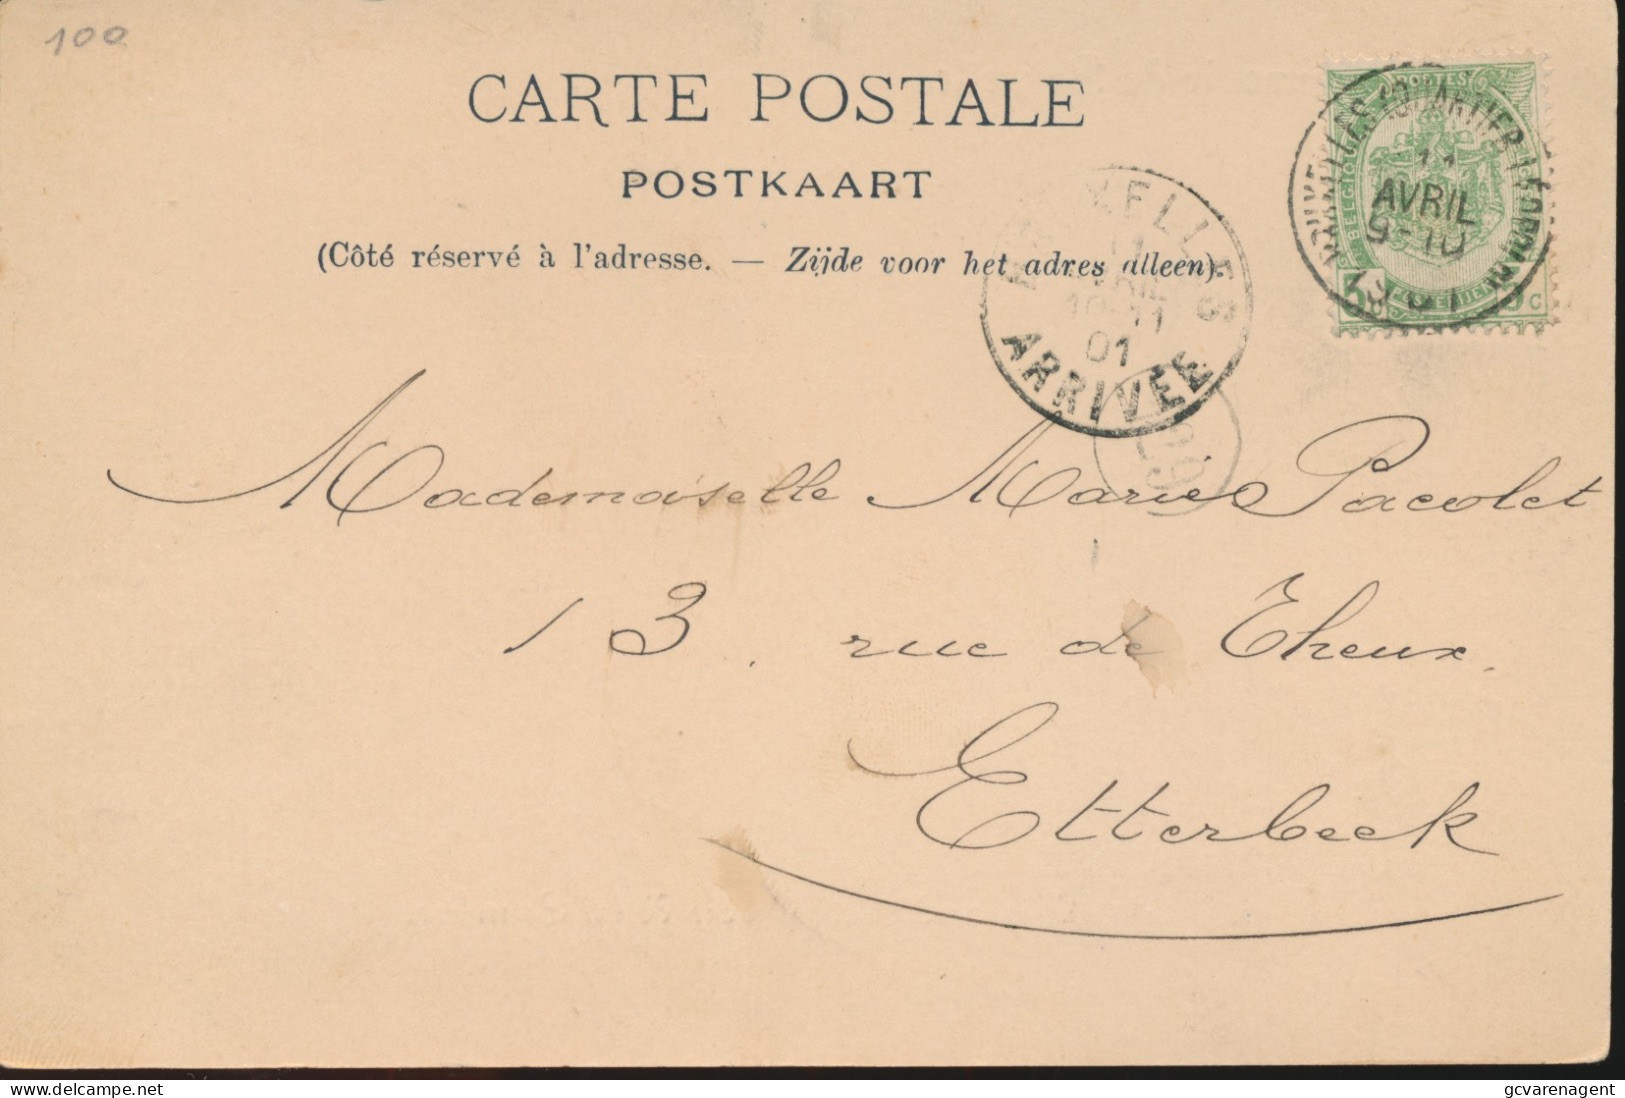 100
CARTE POSTALE
POSTKAART
(Côté réservé à l'adresse. — Zijde voor het adres alleen).
POSTES
BELGIQUE
5 C
BRUXELLES (QUARTIER LÉOPOLD)
11
AVRIL
9-10
1901
BRUXELLES
11
AVRIL
10-11
01
ARRIVÉE
Mademoiselle Marie Pacolet
13. rue de Theux.
Etterbeck
delcampe.net
gcvarenagent